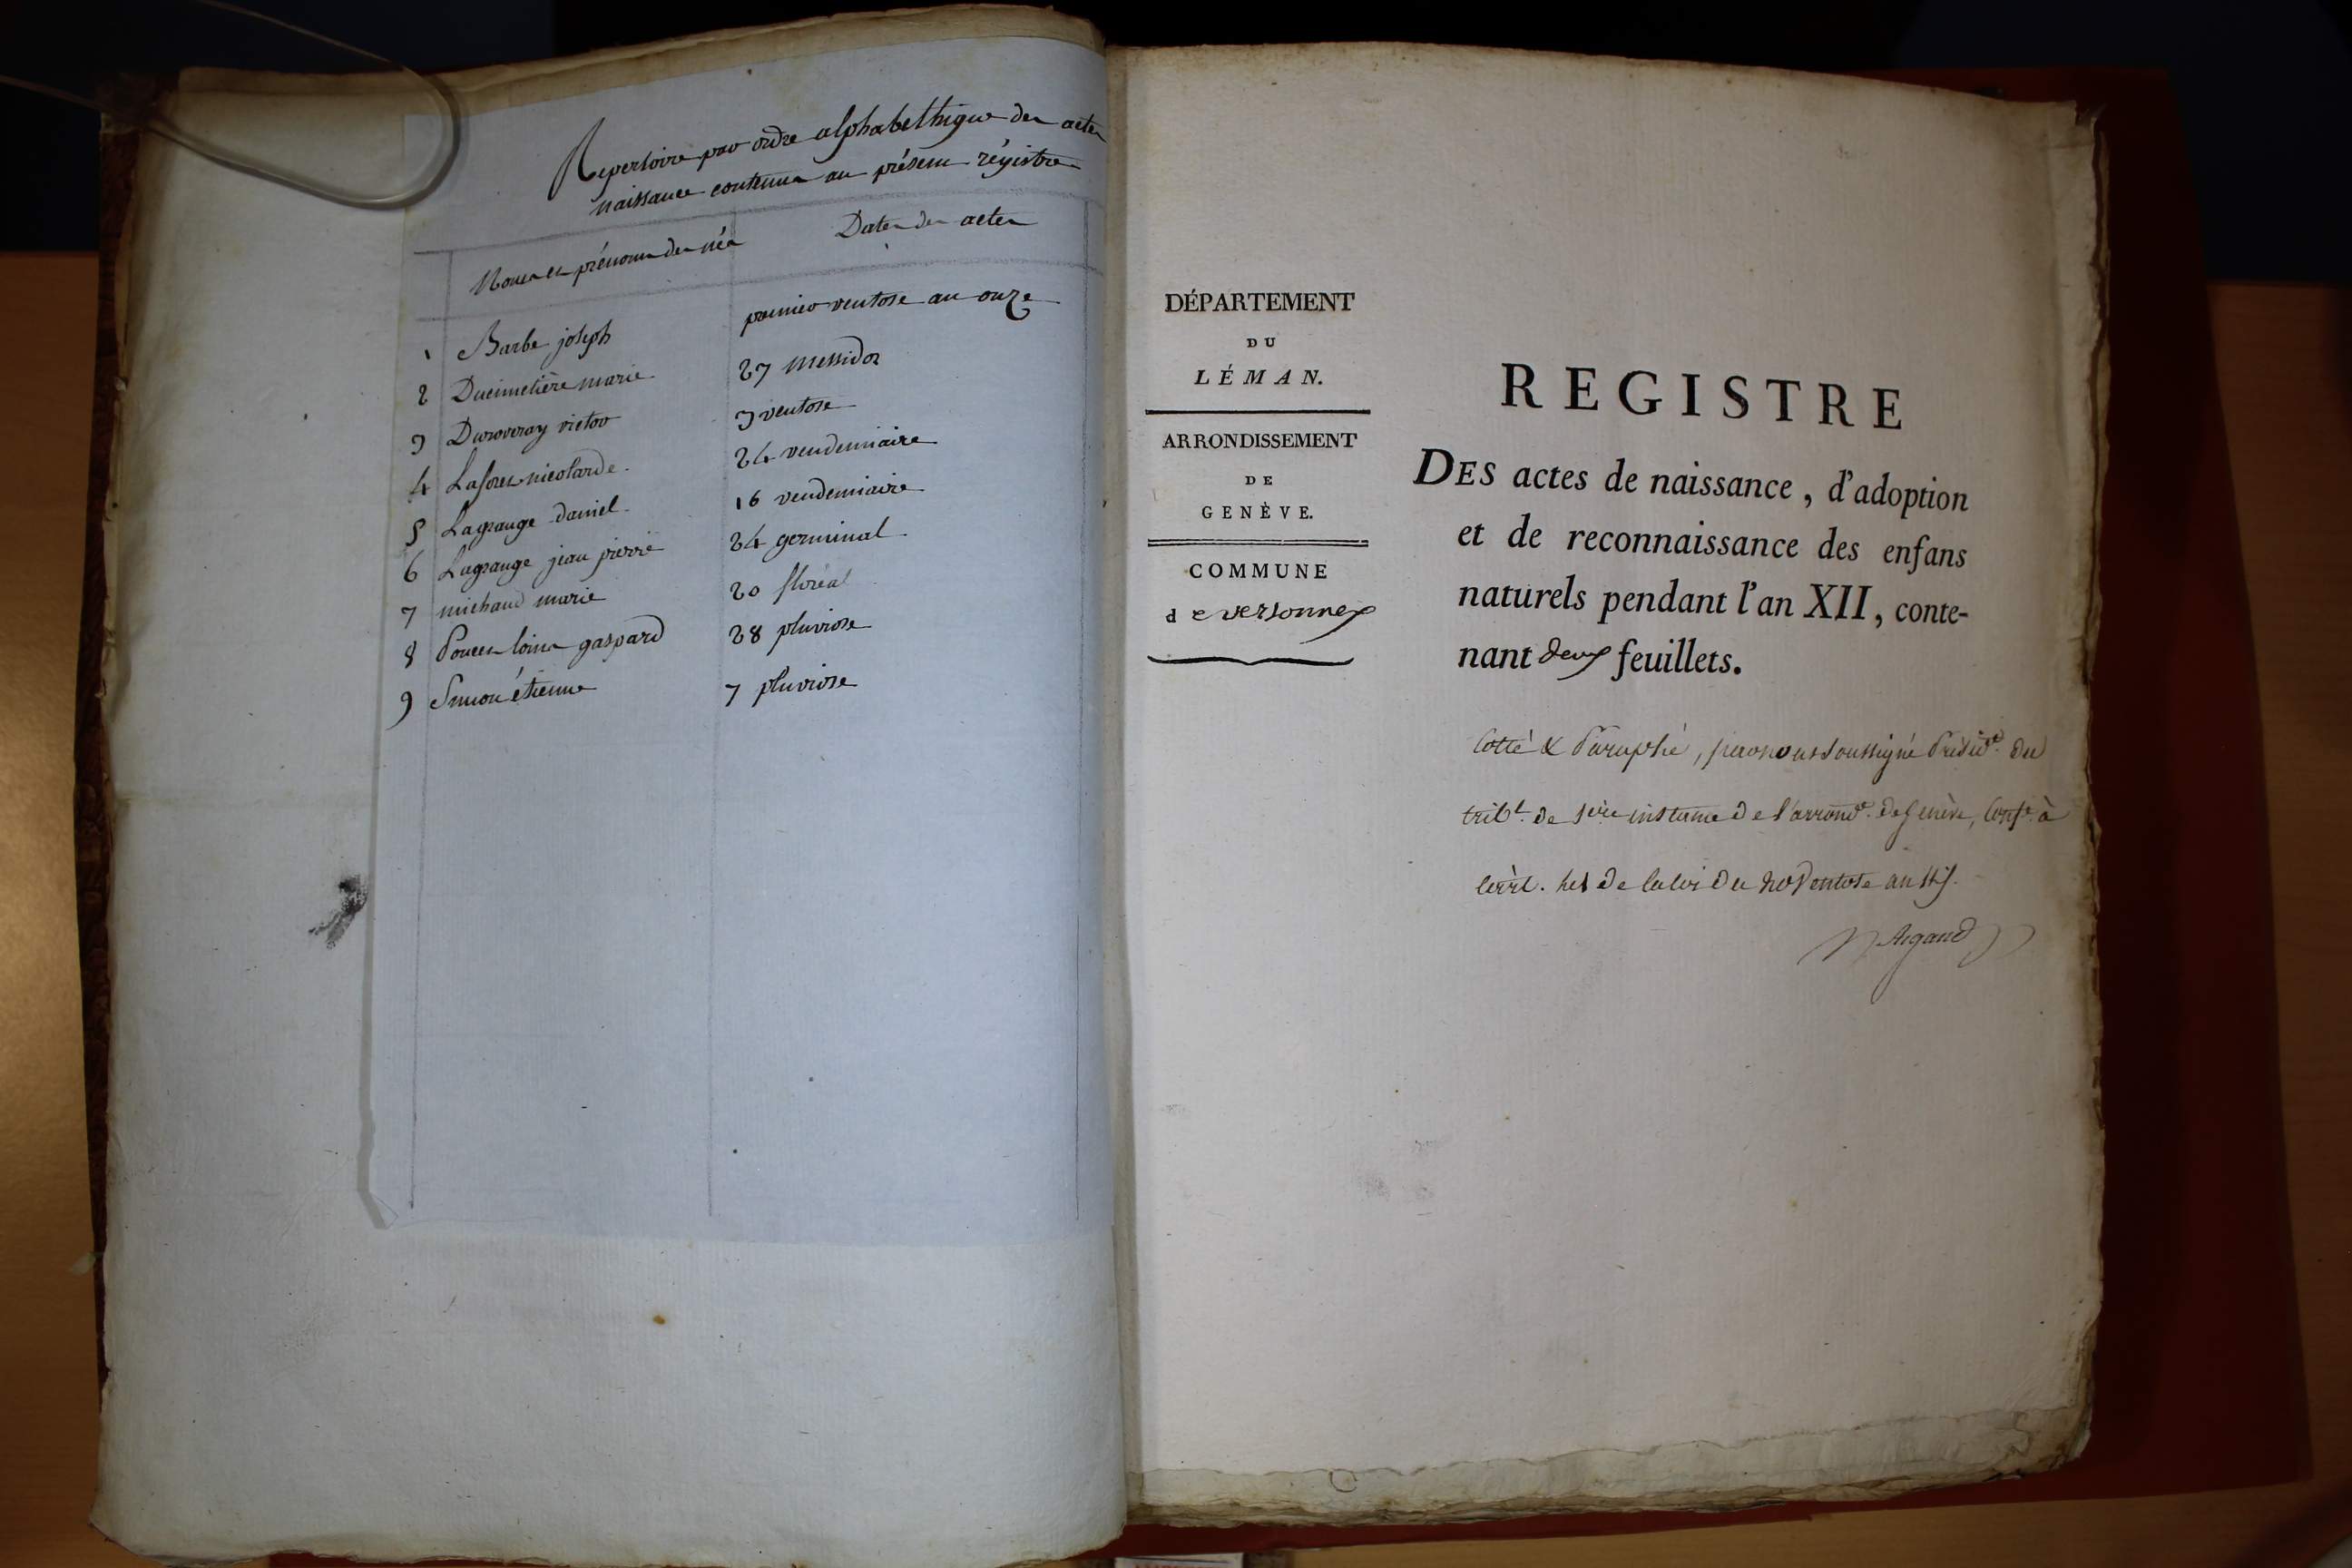 Repertoire par ordre alphabethique des actes
naissance contenus au présent régistre
Noms et prénoms des nés
Dates des actes
1 Barbe joseph premier ventose an onze
2 Ducimetière marie 27 messidor
3 Duroveray victor 3 ventose
4 Laforet nicolarde 24 vendemiaire
5 Lagrange daniel 16 vendemiaire
6 Lagrange jean pierre 24 germinal
7 michaud marie 20 floréal
8 Poncet loius gaspard 28 pluviose
9 Simon étienne 7 pluviose
DÉPARTEMENT
DU
LÉMAN.
ARRONDISSEMENT
DE
GENÈVE.
COMMUNE
de versonnex
REGISTRE
DES actes de naissance, d'adoption
et de reconnaissance des enfans
naturels pendant l'an XII, conte-
nant deux feuillets.
Cotté & Paraphé, par nous soussigné Présidt. du
tribl. de 1ère instance de l'arrondt. de Genève, Conft. à
de la loi du Ventose an
Argand